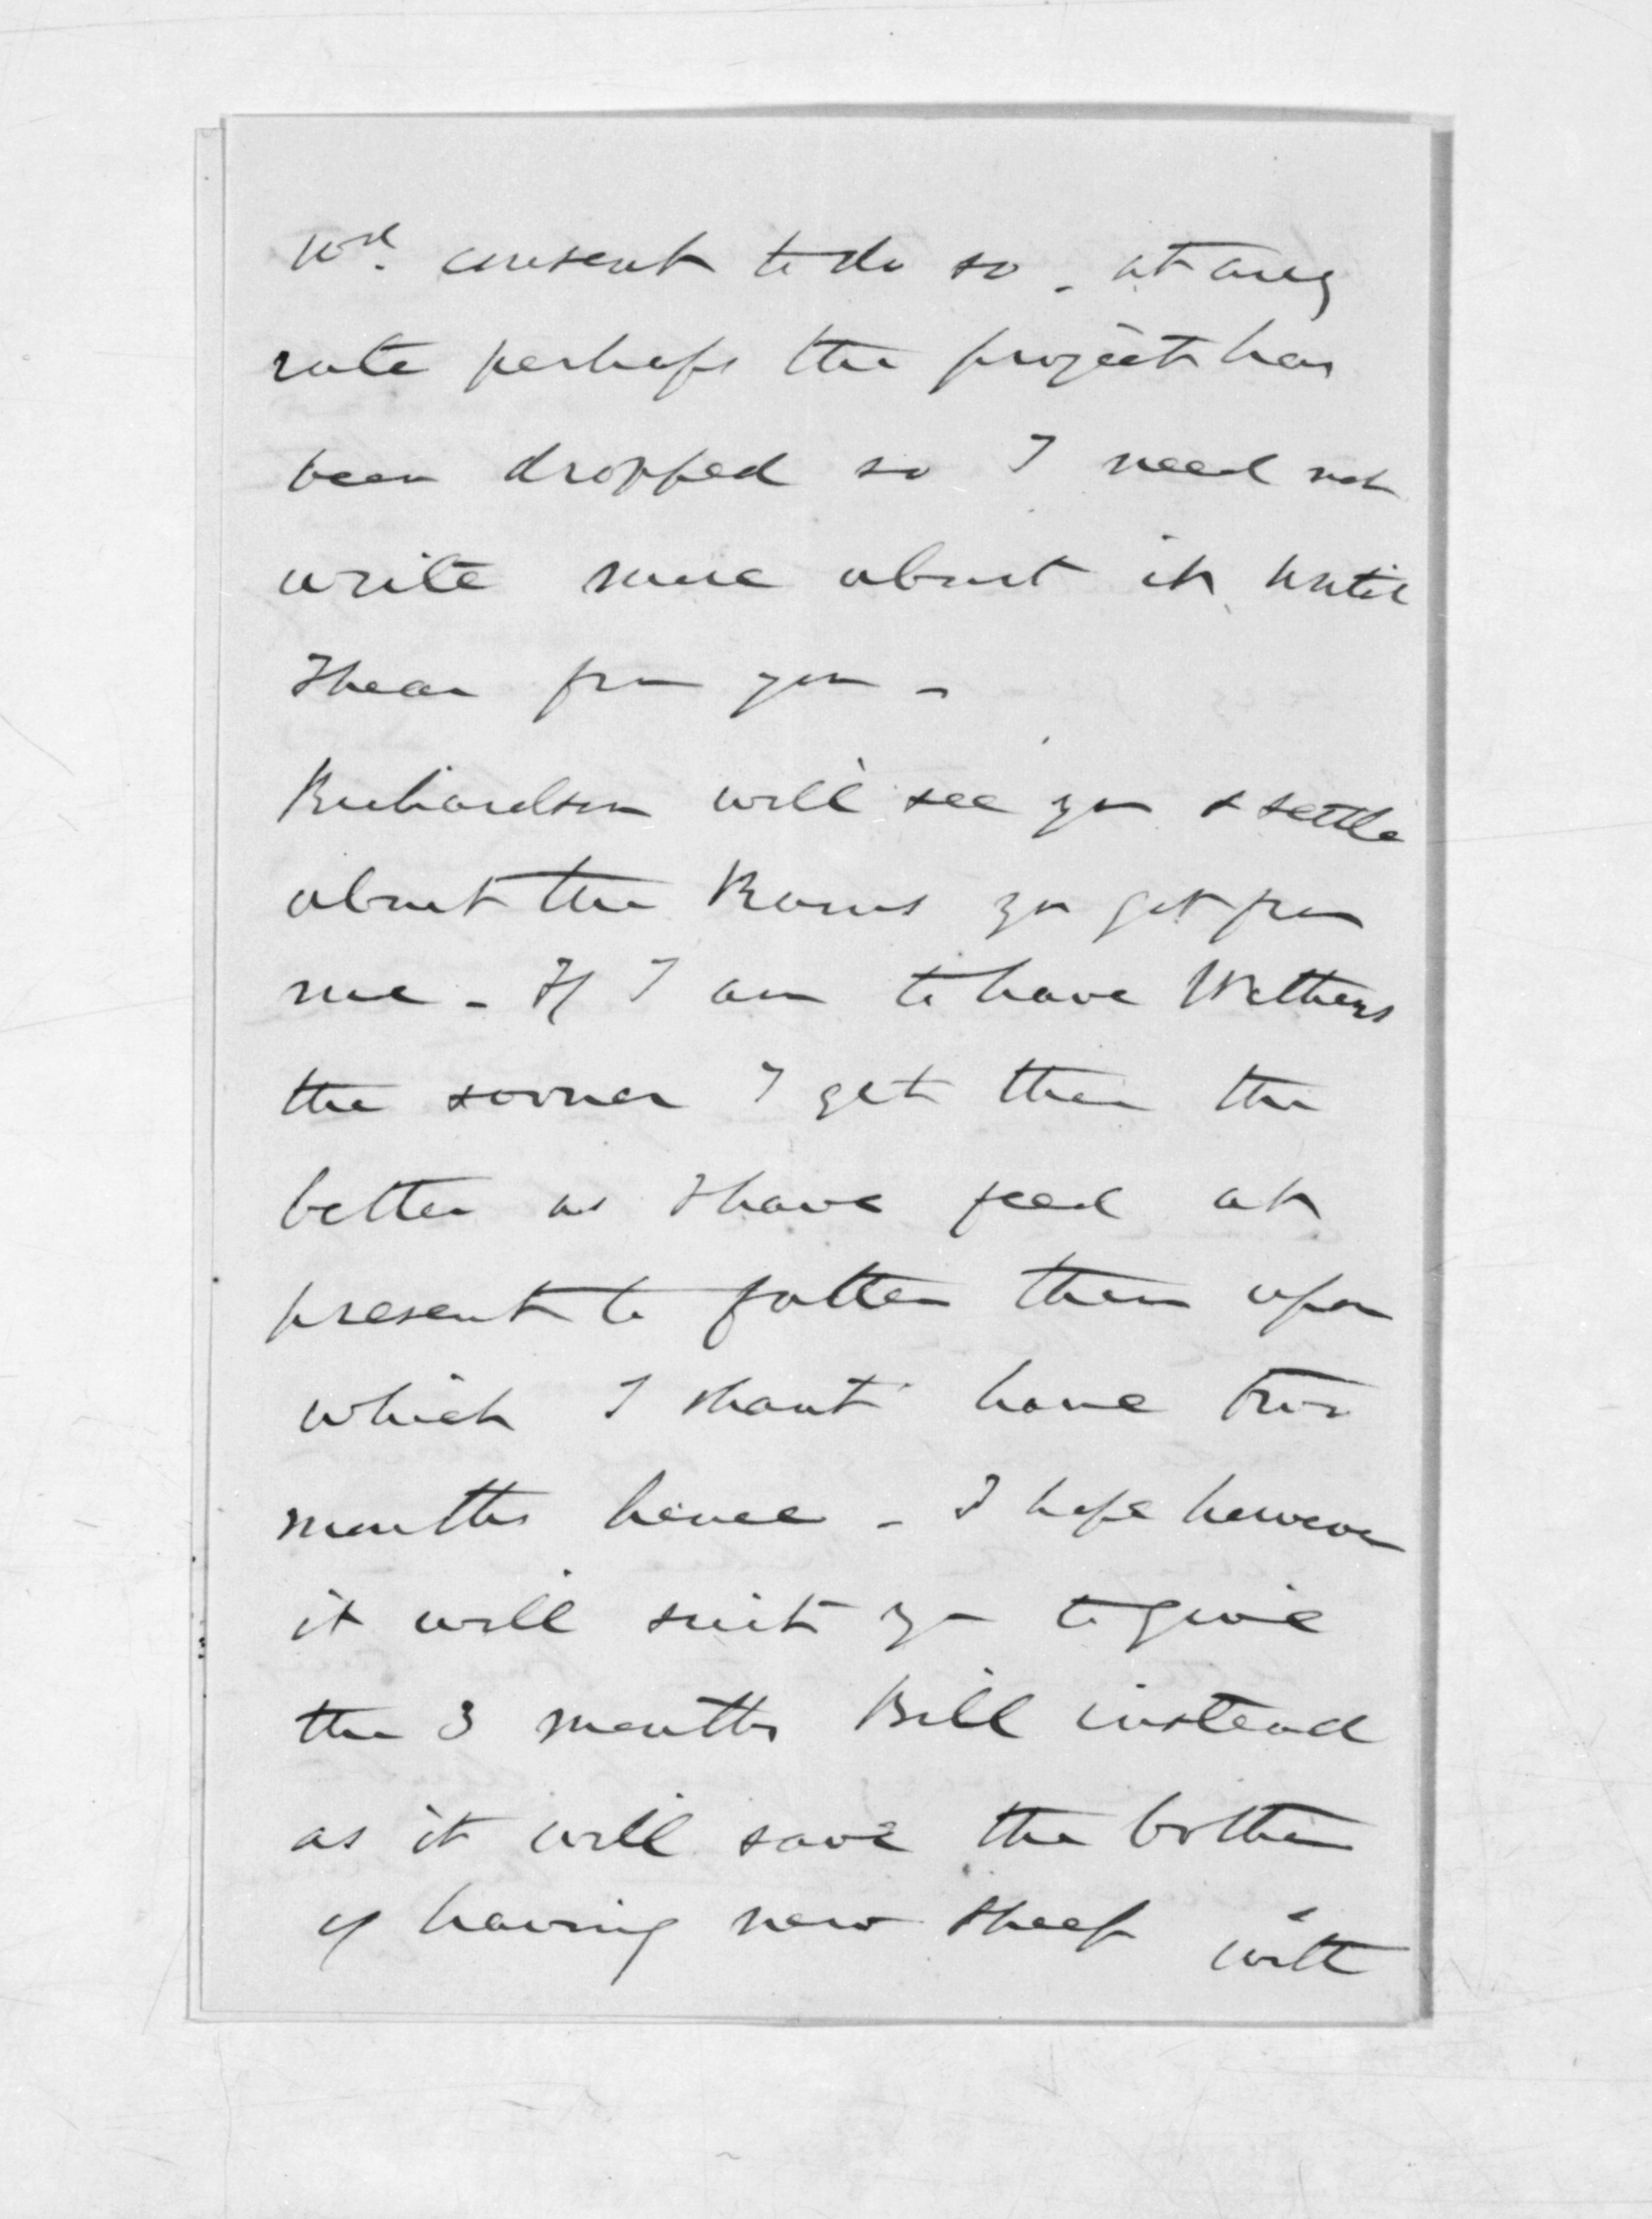 wd. consent to do so - at any
rate perhaps the project has
been dropped so I need not
write more about it until
I hear from you -
Richardson will see you & settle
about the Rams you got from
me - If I am to have Wethers
the sooner I get them the
better as I have feed at
present to fatten them upon
which I shant have two
months hence - I hope however
it will suit you to give
the 3 months Bill instead
as it will save the bother
of having new sheep with